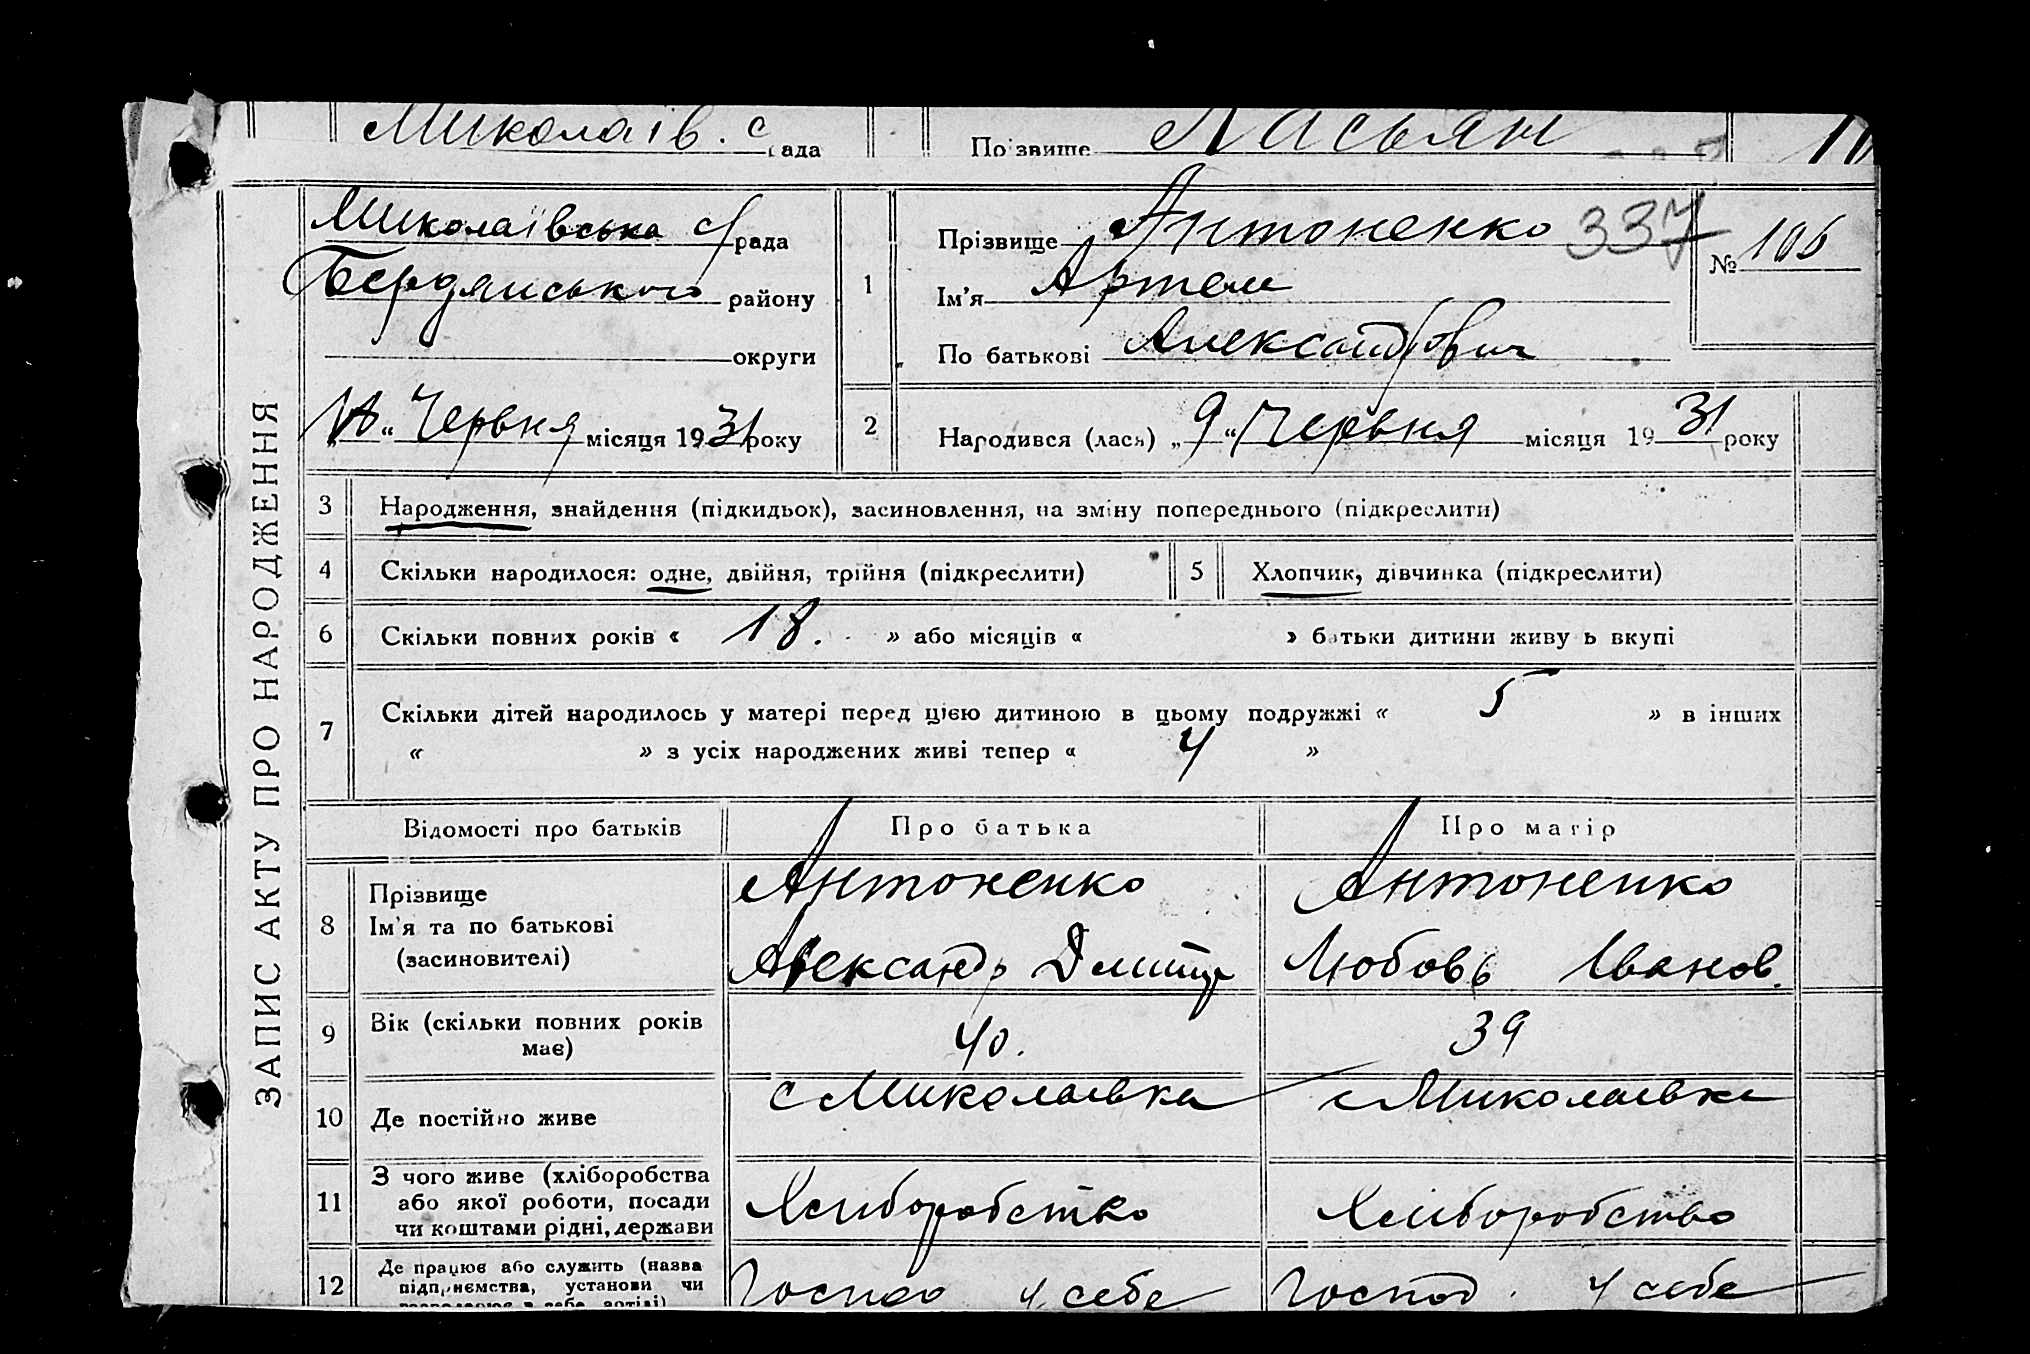 Миколаів. с рада
Позвище Касьян
ЗАПИС АКТУ ПРО НАРОДЖЕННЯ
Миколаївська с/рада
Бердянського району
округи
10 „ Червня місяця 1931 року
1
Прізвище Антоненко 337
№ 106
Ім'я Артем
По батькові Александрович
2
Народився (лася) „ 9 “ Червня місяця 1931 року
3 Народження, знайдення (підкидьок), засиновлення, на зміну попереднього (підкреслити)
4 Скільки народилося: одне, двійня, трійня (підкреслити) 5 Хлопчик, дівчинка (підкреслити)
6 Скільки повних років « 18. » або місяців « » батьки дитини живуть вкупі
7 Скільки дітей народилось у матері перед цією дитиною в цьому подружжі « 5 » в інших
« » з усіх народжених живі тепер « 4 »
Відомості про батьків Про батька Про матір
8 Прізвище Антоненко Антоненко
Ім'я та по батькові
(засиновителі) Александр Дмитр Любовь Іванов.
9 Вік (скільки повних років
має) 40. 39
10 Де постійно живе с Миколаевка с Миколаевка
11 З чого живе (хліборобства
або якої роботи, посади
чи коштами рідні, держави Хліборобство Хліборобство
12 Де працює або служить (назва
підприємства, установи чи
Господ у себе Господ. у себе